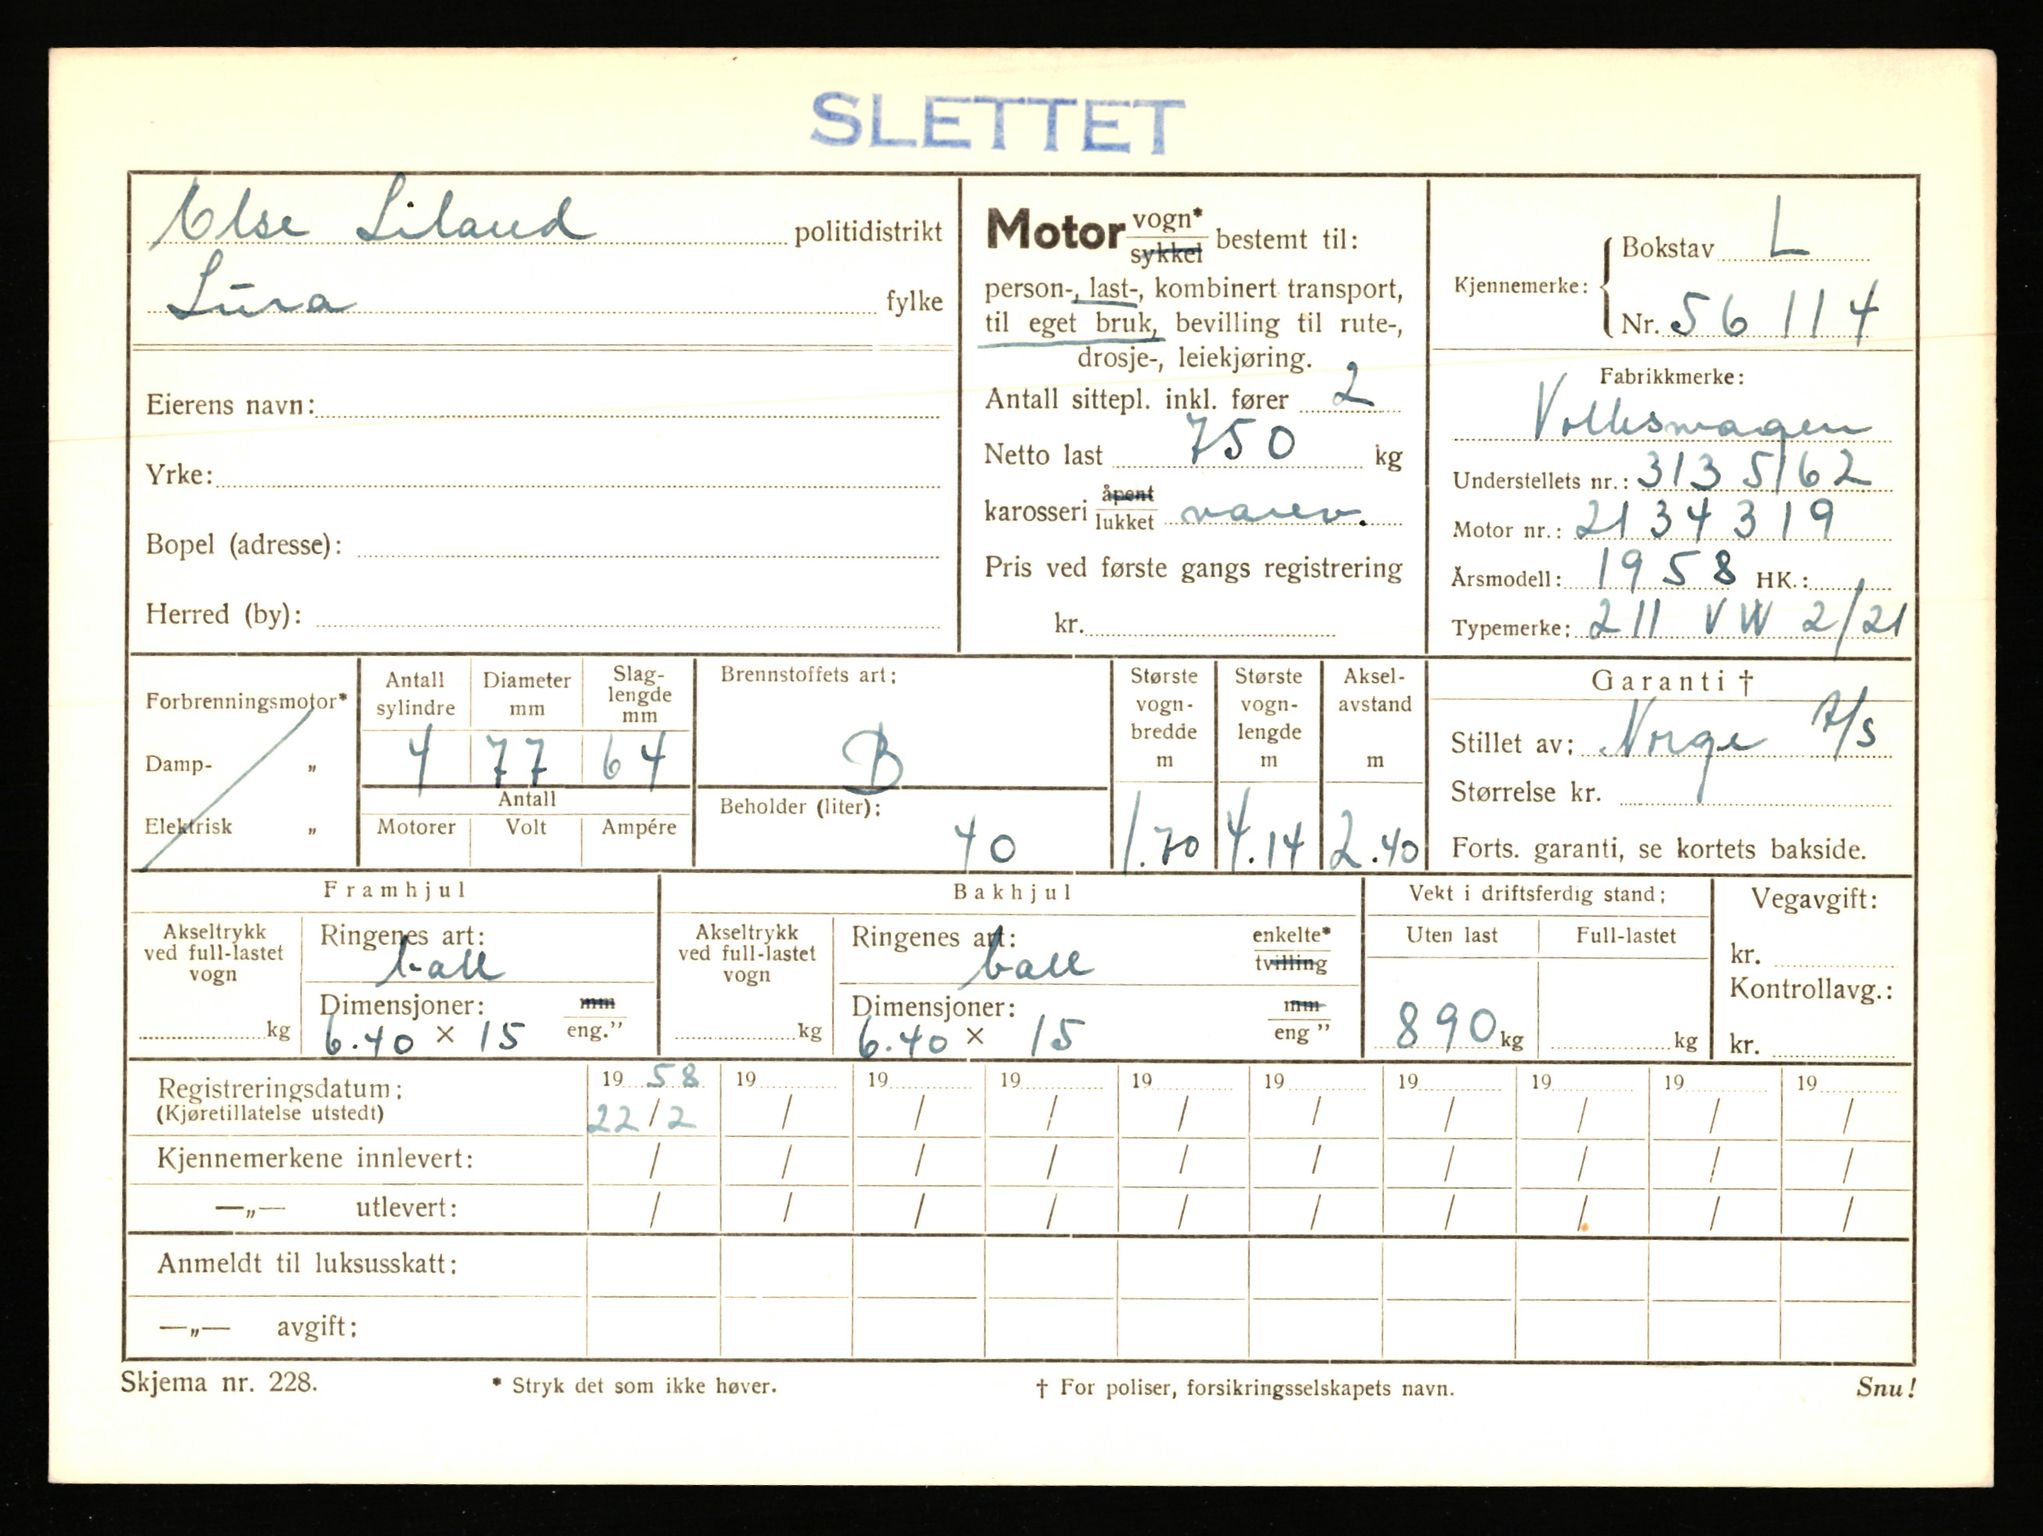 SLETTET
Else Liland politidistrikt
Lura fylke
Eierens navn:
Yrke:
Bopel (adresse):
Herred (by):
Motor vogn* sykkel bestemt til:
person-, last-, kombinert transport,
til eget bruk, bevilling til rute-,
drosje-, leiekjøring.
Antall sittepl. inkl. fører 2
Netto last 750 kg
karosseri åpent lukket varev.
Pris ved første gangs registrering
kr.
Kjennemerke: Bokstav L
Nr. 56114
Fabrikkmerke:
Volkswagen
Understellets nr.: 313 5162
Motor nr.: 2134319
Årsmodell: 1958 HK.:
Typemerke: 211 VW 2/21
Forbrenningsmotor*
Damp- „
Elektrisk „
Antall sylindre
4
Diameter mm
77
Slag-lengde mm
64
Antall
Motorer Volt Ampére
Brennstoffets art:
B
Beholder (liter):
40
Største vogn-bredde m
1.70
Største vogn-lengde m
4.14
Aksel-avstand m
2.40
Garanti †
Stillet av: Norge A/S
Størrelse kr.
Forts. garanti, se kortets bakside.
Framhjul
Akseltrykk
ved full-lastet
vogn
kg
Ringenes art:
ball
Dimensjoner: mm
6.40 × 15 eng.”
Bakhjul
Akseltrykk
ved full-lastet
vogn
kg
Ringenes art: enkelte*
ball tvilling
Dimensjoner: mm
6.40 × 15 eng ”
Vekt i driftsferdig stand:
Uten last Full-lastet
890 kg kg
Vegavgift:
kr.
Kontrollavg.:
kr.
Registreringsdatum: 19 58 19 19 19 19 19 19 19 19 19
(Kjøretillatelse utstedt) 22/2 / / / / / / / / /
Kjennemerkene innlevert: / / / / / / / / / /
—„— utlevert: / / / / / / / / / /
Anmeldt til luksusskatt:
—„— avgift:
Skjema nr. 228. * Stryk det som ikke høver. † For poliser, forsikringsselskapets navn. Snu!